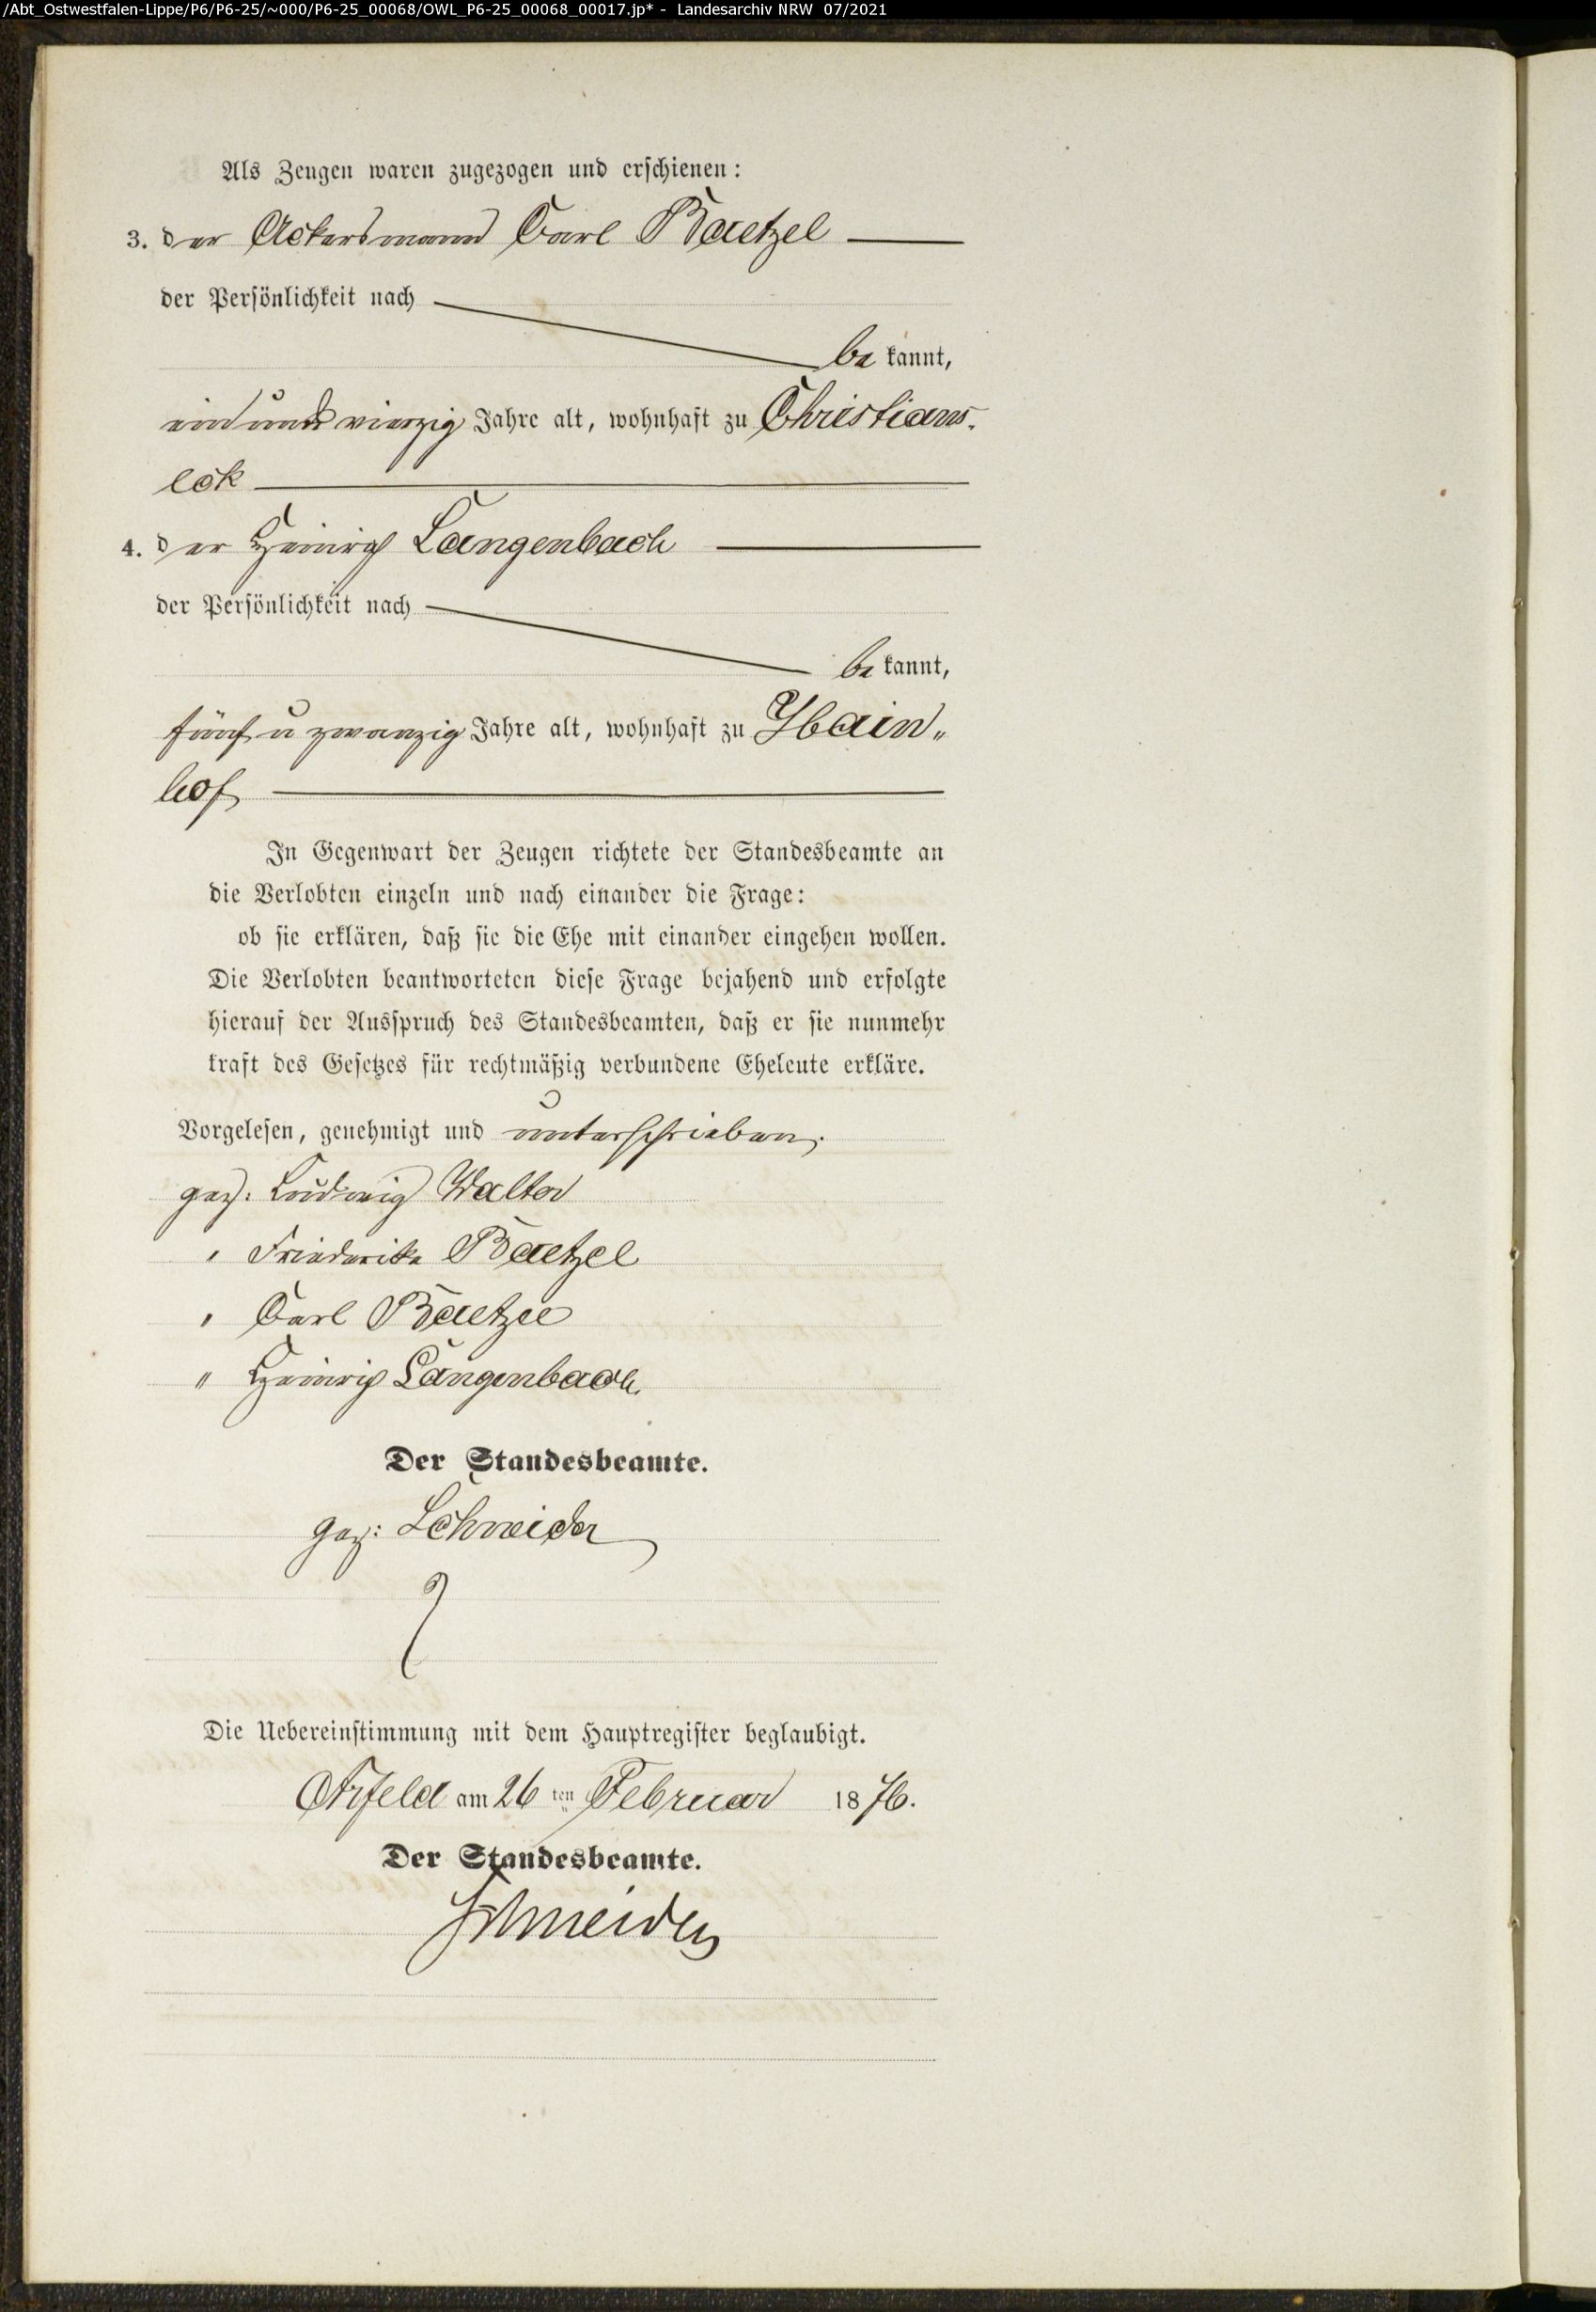 /Abt_Ostwestfalen-Lippe/P6/P6-25/~000/P6-25_00068/OWL_P6-25_00068_00017.jp* - Landesarchiv NRW 07/2021
Als Zeugen waren zugezogen und erschienen:
3. der Ackersmann Carl Baetzel
der Persönlichkeit nach
be kannt,
ein und vierzig Jahre alt, wohnhaft zu Christians-
eck
4. der Heinrich Langenbach
der Persönlichkeit nach
be kannt,
fünf u zwanzig Jahre alt, wohnhaft zu Hain„
hof
In Gegenwart der Zeugen richtete der Standesbeamte an
die Verlobten einzeln und nach einander die Frage:
ob sie erklären, daß sie die Ehe mit einander eingehen wollen.
Die Verlobten beantworteten diese Frage bejahend und erfolgte
hierauf der Ausspruch des Standesbeamten, daß er sie nunmehr
kraft des Gesetzes für rechtmäßig verbundene Eheleute erkläre.
Vorgelesen, genehmigt und unterschrieben.
gez: Ludwig Walter
" Friederike Baetzel
" Carl Baetzel
" Heinrich Langenbach.
Der Standesbeamte.
gez: Schneider
Die Uebereinstimmung mit dem Hauptregister beglaubigt.
Arfeld am 26 ten Februar 1876.
Der Standesbeamte.
Schneider